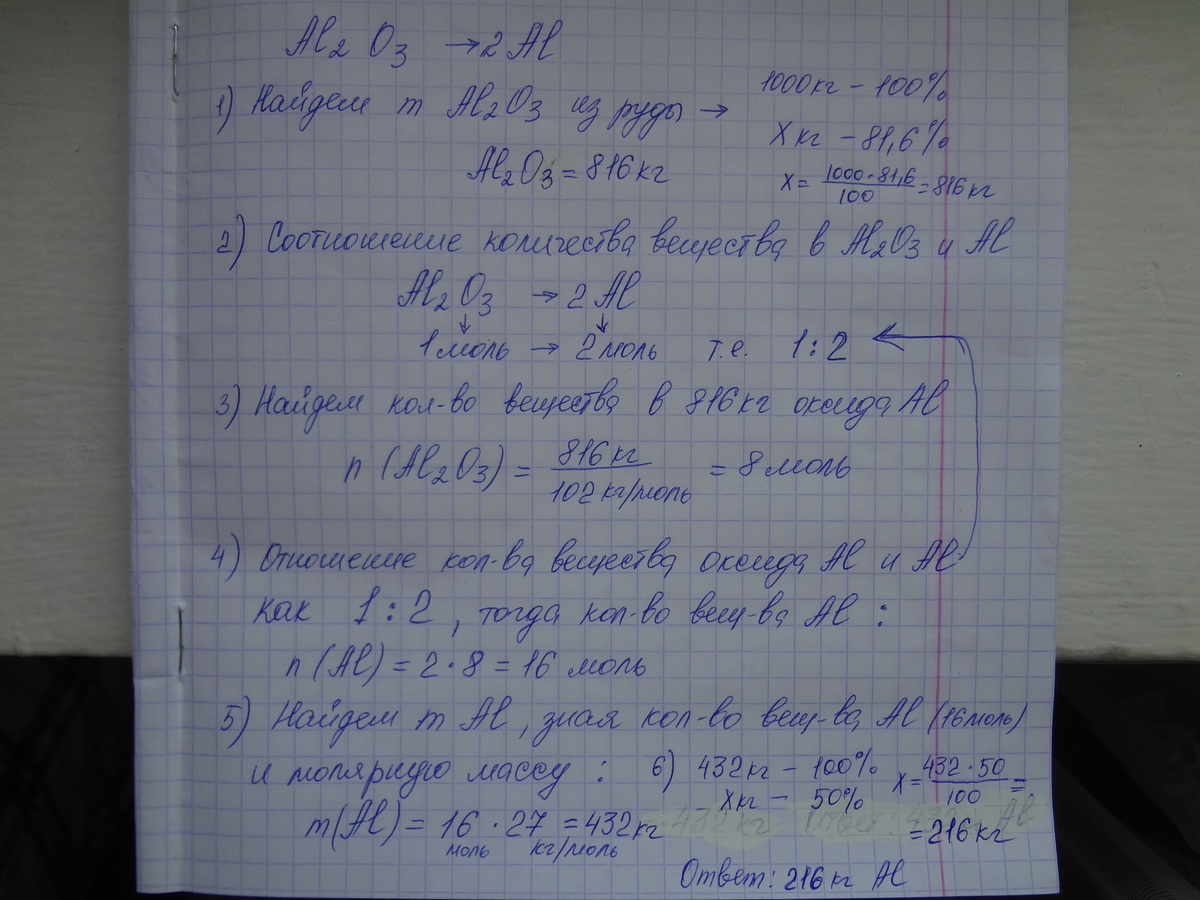 Al₂O₃ → 2Al
1) Найдем m Al₂O₃ из руды → 1000кг - 100%
Xкг - 81,6%
Al₂O₃ = 816кг
X = 1000·81,6/100 = 816кг
2) Соотношение количества вещества в Al₂O₃ и Al
Al₂O₃ → 2Al
↓ ↓
1моль → 2моль т.е. 1:2
3) Найдем кол-во вещества в 816кг оксида Al
n(Al₂O₃) = 816кг/102кг/моль = 8моль
4) Отношение кол-ва вещества оксида Al и Al
как 1:2, тогда кол-во вещ-ва Al:
n(Al) = 2·8 = 16 моль
5) Найдем m Al, зная кол-во вещ-ва Al (16моль)
и молярную массу:
m(Al) = 16 моль · 27 кг/моль = 432кг
6) 432кг - 100%
Xкг - 50%
X = 432·50/100 =
= 216кг
Ответ: 216кг Al